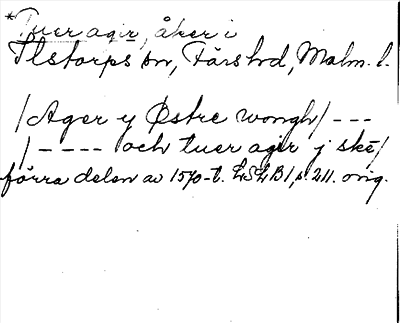 *Tuer agir, åker i
Ilstorps sn, Färs hd, Malm. l.
/Ager y Østre wongh/ ---
/---- och tuer agir j ske/
förra delen av 1570-t. LSLB1, s. 211. orig.